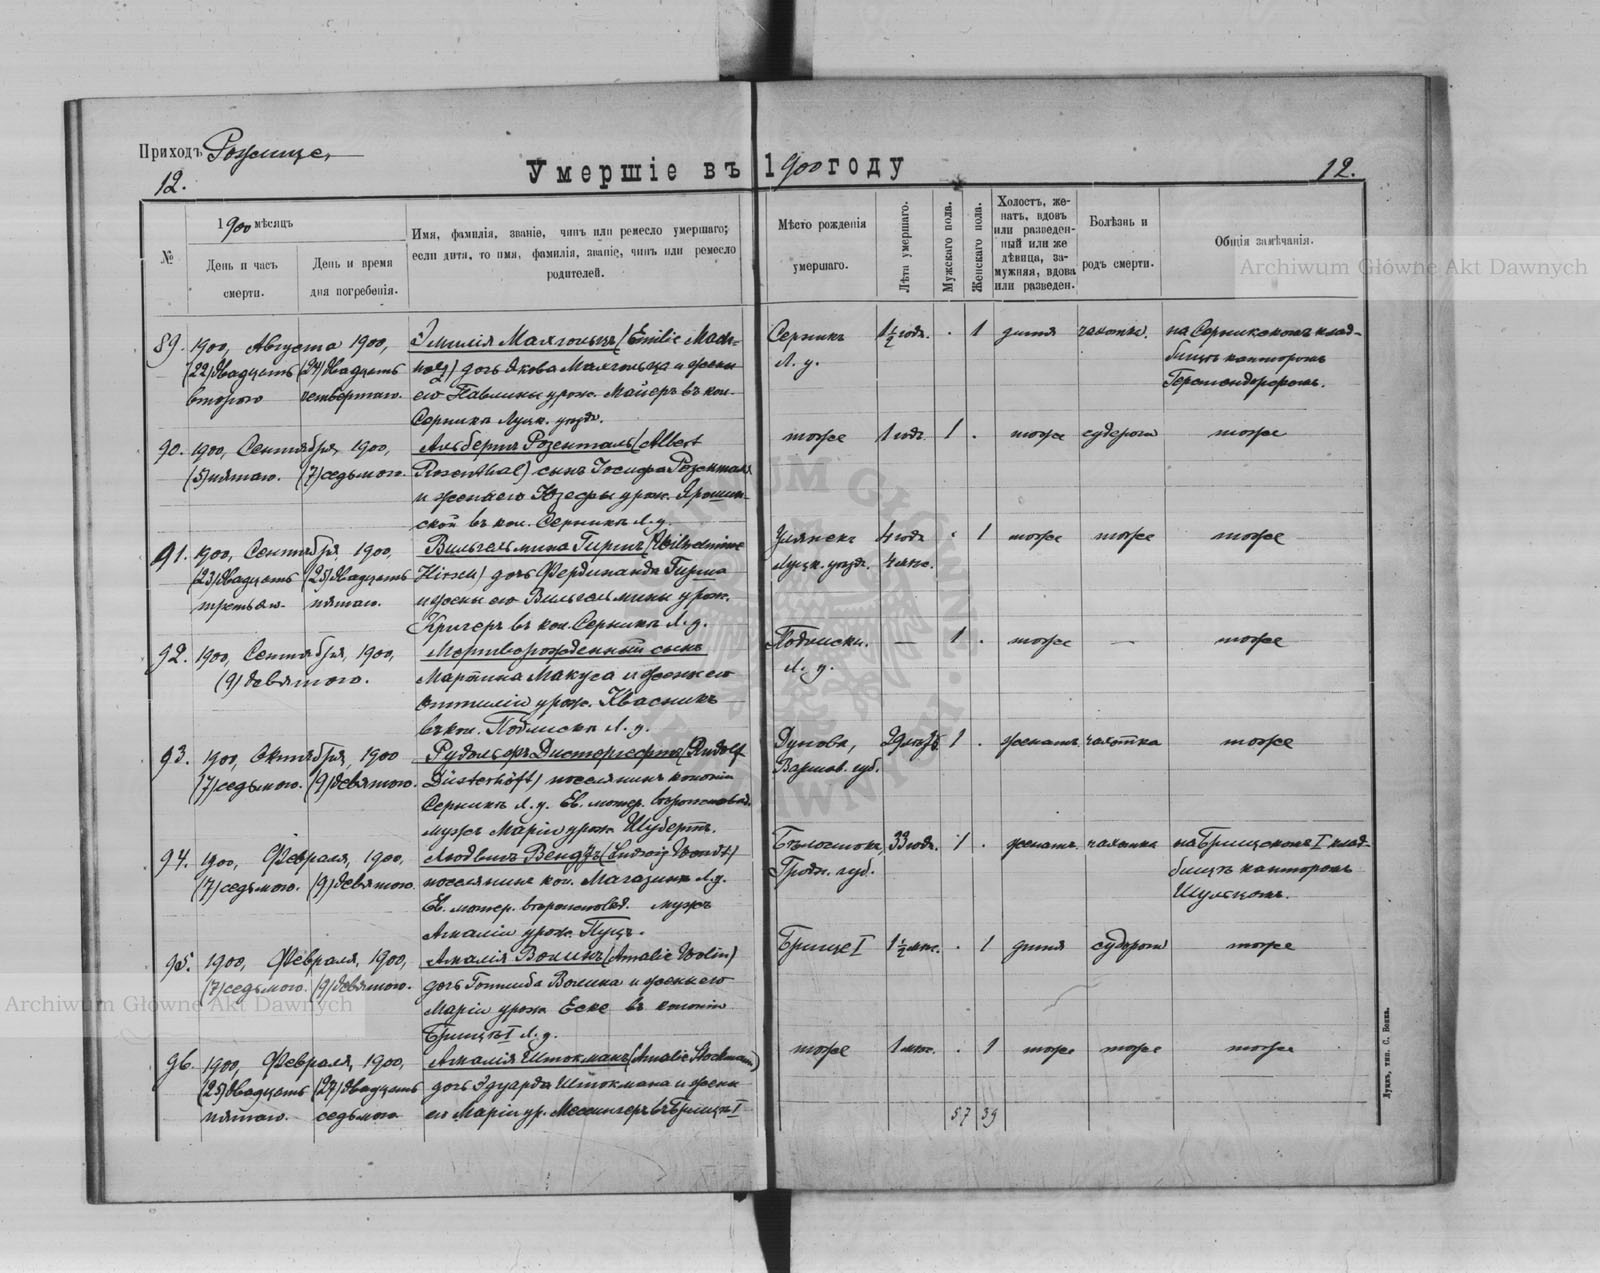 Приходъ Рожище,
12.
Умершіе въ 1900 году
12.
№
1900 мѣсяцъ
День и часъ смерти.
День и время дня погребенія.
Имя, фамилія, званіе, чинъ или ремесло умершаго;
если дитя, то имя, фамилія, званіе, чинъ или ремесло
родителей.
Мѣсто рожденія
умершаго.
Лѣта умершаго.
Мужскаго пола.
Женскаго пола.
Холостъ, же-
натъ, вдовъ
или разведен-
ный или же
дѣвица, за-
мужняя, вдова
или разведен.
Болѣзнь и
родъ смерти.
Общія замѣчанія.
Archiwum Główne Akt Dawnych
89. 1900, Августа 1900, Эмилія Махгольцъ (Emilie Mach- Серникъ 1½ годъ. . 1 дитя чахотка. на Серникскомъ клад-
(22) двадцать (24) двадцать holz) дочь Якова Махгольца и жены Л. у. бищѣ канторомъ
второго четвертаго. его Павлины урож. Майеръ въ кол.
Серникъ Луцк. уѣзда.
90. 1900, Сентября, 1900, Альбертъ Розенталь (Albert тоже 1 годъ 1 . тоже судороги тоже
(5) пятаго. (7) седьмого. Rosenthal) сынъ Іосифа Розенталь
и жены его Юзефы урож. Ярошин-
ской въ кол. Серникъ Л. у.
91. 1900, Сентября 1900, Вильгельмина Гиршъ (Wilhelmine 4 года . 1 тоже тоже тоже
(23) двадцать (25) двадцать Hirsch) дочь Фердинанда Гирша Луцк. уѣзд. 4 мѣс.
третьяго. пятаго. и жены его Вильгельмины урож.
Кригеръ въ кол. Серникъ Л. у.
92. 1900, Сентября, 1900, Мертворожденный сынъ — 1 . тоже — тоже
(9) девятого. Мартина Макуса и жены его Л. у.
Оттиліи урож. Квасникъ
въ кол. Л. у.
93. 1900, Октября, 1900 Рудольфъ Дистергефтъ (Rudolf 1 . женатъ чахотка тоже
(7) седьмого. (9) девятого. Düsterhöft) поселянинъ колоніи Варшав. губ.
Серникъ Л. у. Ев. лютер. вѣроисповѣд.
мужъ Маріи урож. Шубертъ.
94. 1900, Февраля, 1900, Людвигъ Вендтъ (Ludwig Wendt) Бѣлостокъ, 33 года. 1 . женатъ чахотка на Брищскомъ I клад-
(7) седьмого. (9) девятого. поселянинъ кол. Магазинъ Л. у. Гродн. губ. бищѣ канторомъ
Ев. лютер. вѣроисповѣд. мужъ Шульцомъ.
Амаліи урож. Пуцъ.
95. 1900, Февраля, 1900, Амалія Волинъ (Amalie Wolin) Брище I 1½ мѣс. . 1 дитя судороги тоже
(7) седьмого. (9) девятого. дочь Готлиба Волина и жены его
Маріи урож. Еске въ колоніи
Брище I Л. у.
Archiwum Główne Akt Dawnych
96. 1900, Февраля, 1900, Амалія Штокманъ (Amalie Stockmann) тоже 1 мѣс. . 1 тоже тоже тоже
(25) двадцать (27) двадцать дочь Эдуарда Штокмана и жены
пятаго. седьмого. его Маріи ур. Мессингеръ въ Брище I
57 39
Луцкъ, тип. С. Бокка.